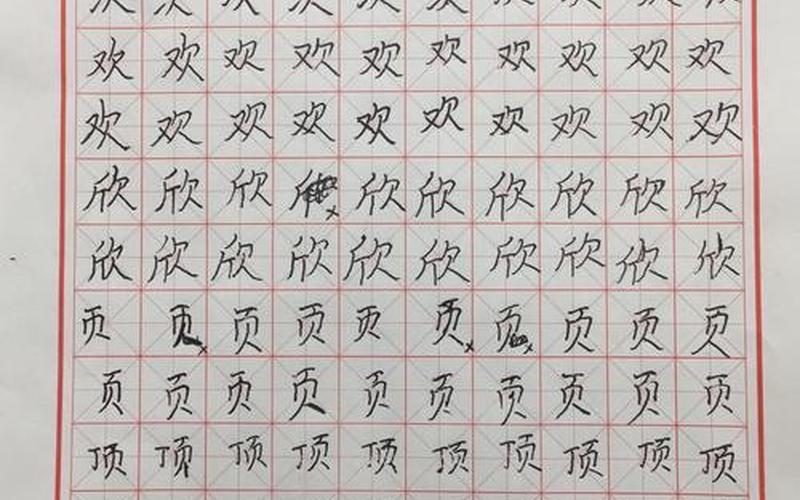 欢 欢 欢 欢 欢 欢 欢 欢 欢 欢
欢 欢 欢 欢 欢 欢 欢 欢 欢 欢
欣 欣 欣 欣 欣 欣 欣 欣 欣
欣 欣 欣 欣 欣 欣 欣 欣 欣 欣
页 页 页 页 页 页 页 页 页 页
页 页 页 页 页 页 页 页 页 页
顶 顶 顶 顶 顶 顶 顶 顶 顶 顶